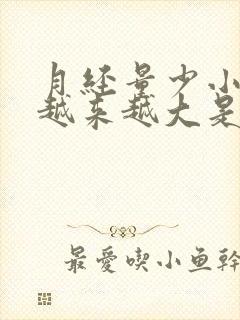 月经量少小
越来越大是
最愛喫小鱼幹